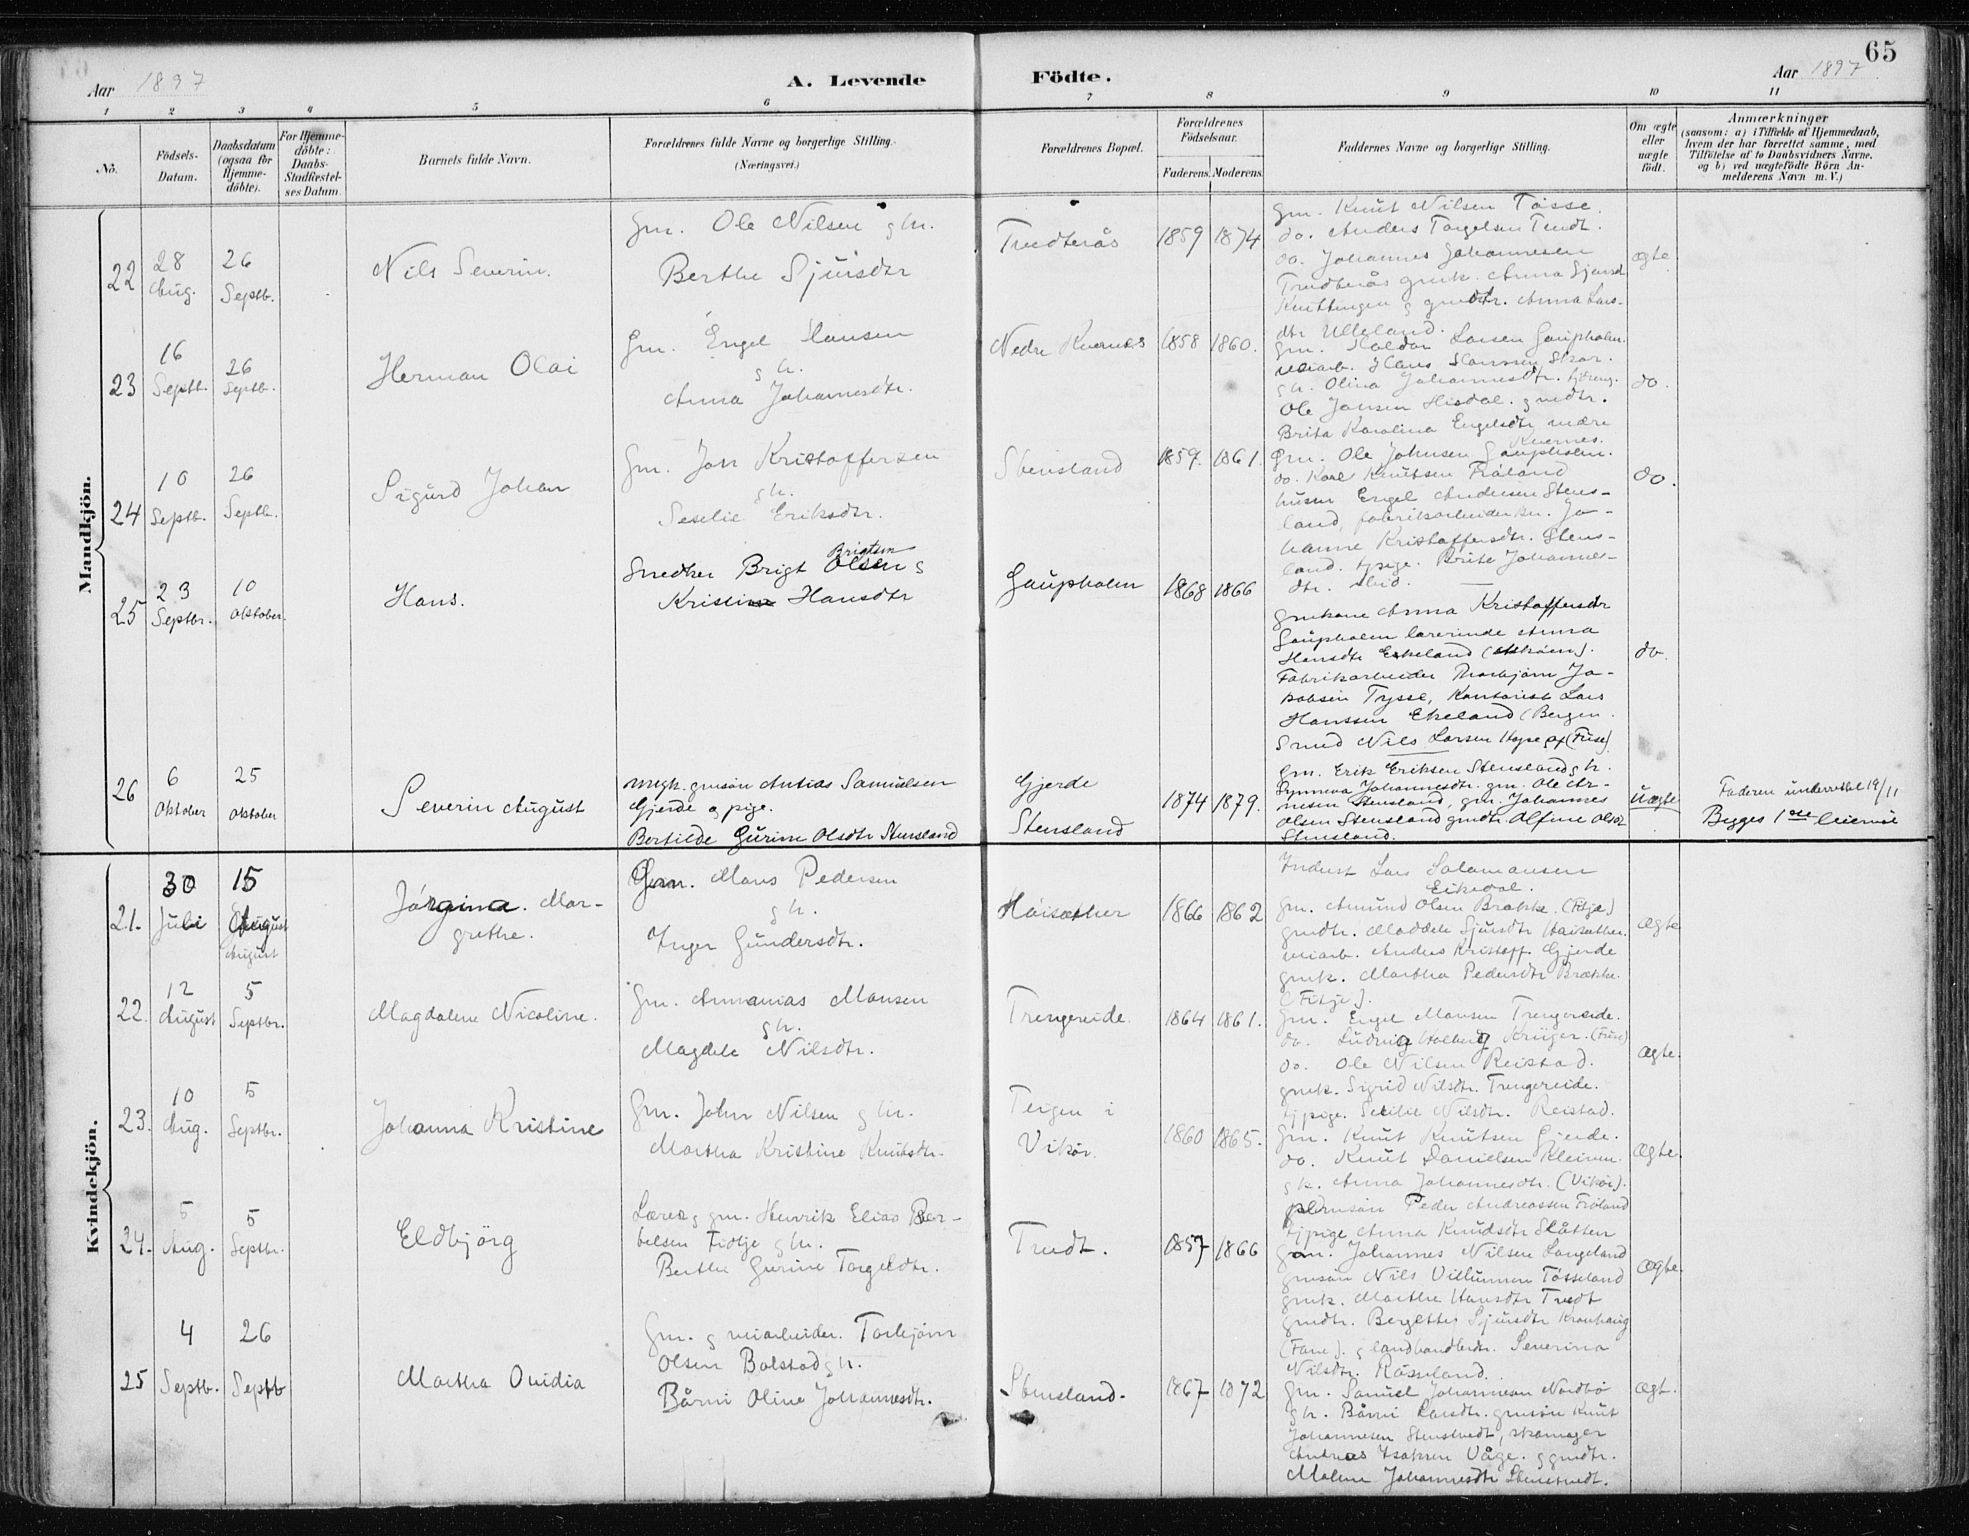 65
Aar 1897
A. Levende
Födte.
Aar 1897
1 2 3 4 5 6 7 8 9 10 11
No.
Födsels-
Datum.
Daabsdatum
(ogsaa for
Hjemme-
döbte).
For Hjemme-
döbte:
Daabs-
Stadfæstel-
ses Datum.
Barnets fulde Navn.
Forældrenes fulde Navne og borgerlige Stilling.
(Næringsvei.)
Forældrenes Bopæl.
Forældrenes
Födselsaar.
Faderens. Moderens.
Faddernes Navne og borgerlige Stilling.
Om ægte
eller
uægte
födt.
Anmærkninger
(saasom: a) i Tilfælde af Hjemmedaab,
hvem der har forrettet samme, med
Tilföielse af to Daabsvidners Navne.
og b) ved uægtefödte Börn An-
melderens Navn m. V.)
Mandkjön.
22
28
Aug.
26
Septb.
Nils Severin.
Gm. Ole Nilsen g hr.
Berthe Sjursdtr
Trudterås
1859 1874
Gm. Knut Nilsen Tøsse.
do. Anders Torgelsen Trudt.
do. Johannes Johannesen
Trudterås gmk. Anna Sjursd.
g gmdtr. Anna Lars-
dtr Ulleland.
ægte
23
16
Septb.
26
Septb.
Herman Olai
Gm. Engel Hansen
g hr.
Anna Johannesdtr.
Nedre Kvernes
1858 1860.
Gm. Haldor Larsen Gaupholm.
veiarb. Hans Hanssen Skor.
g hr. Olina Johannesdtr. tjdreng.
Ole Jansen Hisdal. gmdtr.
Brita Karolina Engelsdtr nedre
Kvernes.
do.
24
10
Septb.
26
Septb.
Sigurd Johan
Gm. Jon Kristoffersen
g hr.
Seselie Eriksdtr.
Stensland
1859. 1861.
Gm. Ole Johnsen Gaupholm.
do. Karl Knutsen Frøland
husm Engel Andersen Stens-
land, fabrikarbeider Jo-
hanne Kristoffersdtr. Stens-
land. tjpige. Brita Johannes-
dtr. ibid.
do.
25
23
Septbr.
10
Oktober.
Hans.
Brigtsen
Snedker Brigt Olsen g
Kristina Hansdtr
Gaupholm
1868 1866
Gmkone Anna Kristoffersdtr
Gaupholm lærerinde Anna
Hansdtr Eskeland (Askøen).
Fabrikarbeider Thorbjørn Ja-
kobsen Trysse, Kontorist Lars
Hanssen Ekeland (Bergen.
Smed Nils Larsen Hope (Fuse)
do.
26
6
Oktober
25
Oktober
Severin August
ungk. gmsøn Antias Samuelsen
Gjerde og pige.
Bertilde Gurine Olsdtr Stensland
Gjerde
Stensland
1874 1879.
Gm. Erik Eriksen Stensland g h.
Synneva Johannesdtr. gm. Ole Ar-
nesen Stensland, gm. Johannes
Olsen Stensland gmdtr. Alfine Olsdtr
Stensland.
Uægte
Faderen underrettet 19/11
Begges 1ste leiermaal
Kvindekjön.
21.
30
Juli
15
August
August
Jørgina. Mar-
grethe.
Gm. Mons Pedersen
g hr.
Inger Gundersdtr.
Høisæther
1866 1862
Inderst Lars Salamonsen
Eikedal.
Gm. Amund Olsen Brække. (Fitje.)
gmdtr. Maddele Sjursdtr Høisæther.
veiarb. Anders Kristoff. Gjerde
gmk. Martha Pedersdtr Brække.
(Fitje).
Ægte
22.
12
August
5
Septbr.
Magdalene Nicoline.
Gm. Annanias Monsen
g hr.
Magdele Nilsdtr.
Trengereide.
1864 1861.
Gm. Engel Monsen Trengereide.
do. Ludvig Holberg Krüger. (Fuse)
do. Ole Nilsen Reistad.
gmk. Sigrid Nilsdtr. Trengereide.
tjpige. Secilie Nilsdtr. Reistad.
Ægte.
23.
10
Aug.
5
Septbr.
Johanna Kristine
Gm. John Nilsen g hr.
Martha Kristine Knutsdtr.
Teigen i
Vikør.
1860 1865.
Gm. Knut Knutsen Gjerde.
do. Knut Danielsen Kleiven.
g k. Anna Johannesdtr. (Vikør).
Peder Andreassen Frøland
tjpige Anna Knudsdtr Slåtten
Ægte.
24.
5
Aug.
5
Septbr.
Eldbjörg
Lærer g gm. Henrik Elias Ber-
telsen Fidtje g hr.
Berthe Gurine Torgelsdtr.
Trudt.
1857 1866
Gm. Johannes Nilsen Langeland
gmsøn Nils Tøsseland
gmk. Marthe Hansdtr Trudt
gmdtr. Bergette Sjursdtr
(Fane). g landhandlerdtr. Severina
Nilsdtr. Røsseland.
Ægte.
25
4
Septb.
26
Septb
Martha Ovidia
Gm. g veiarbeider. Torbjørn
Olsen Bolstad g hr.
Bårni Oline Johannesdtr.
Stensland.
1867 1872
Gm. Samuel Johannesen Nordbø
g hr. Bårni Larsdtr. gmsøn Knut
Johannesen Stenstvedt, skomager
Andreas Isaksen Våge. g gmdtr.
Malene Johannesdtr Stenstvedt.
Ægt.